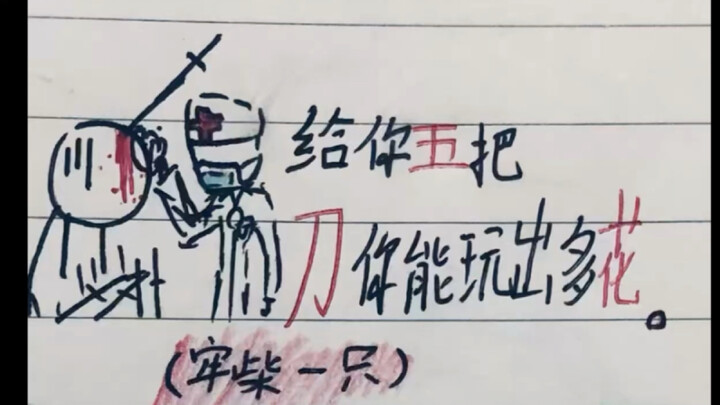 给你五把
刀你能玩出多花。
(牢柴一只)